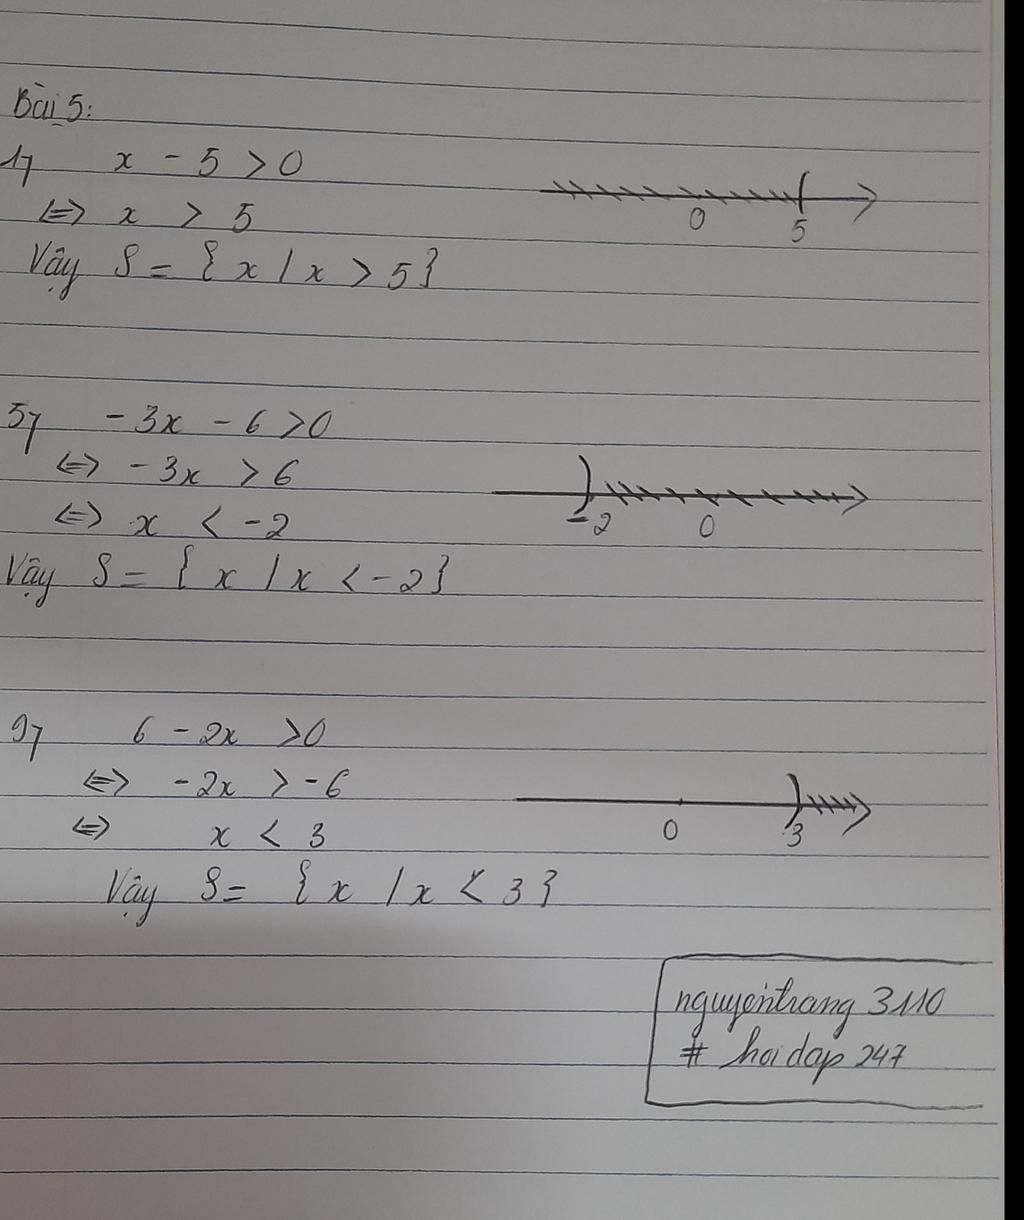 Bài 5:
1, x - 5 > 0
⇔ x > 5
0 5
Vậy S = { x / x > 5 }
5, - 3x - 6 > 0
⇔ - 3x > 6
⇔ x < - 2
-2 0
Vậy S = { x / x < - 2 }
9, 6 - 2x > 0
⇔ - 2x > - 6
⇔ x < 3
0 3
Vậy S = { x / x < 3 }
nguyentrang 3110
# hoidap 247